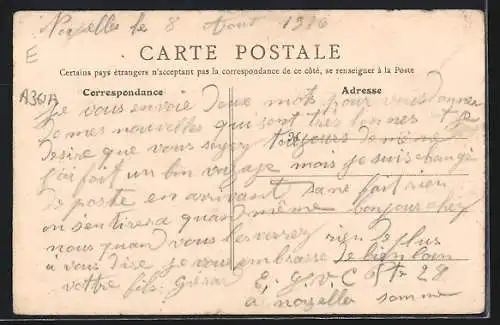 Noyelles le 8 Aout 1916
E
CARTE POSTALE
Certains pays étrangers n'acceptent pas la correspondance de ce côté, se renseigner à la Poste
Correspondance
Adresse
A361A
Je vous envoie deux mots pour vous donner
de mes nouvelles qui sont très bonnes et je
desire que vous soyez toujours de même
j'ai fait un bon voyage mais je suis changé
de poste en arrivant sane fait rien
on s'entirera quand même bonjour chez
nous quand vous les verrez rien de plus
a vous dire je vous embrasse de bien loin
votre fils Gérard
E. G. V. C 28
a noyelles somme